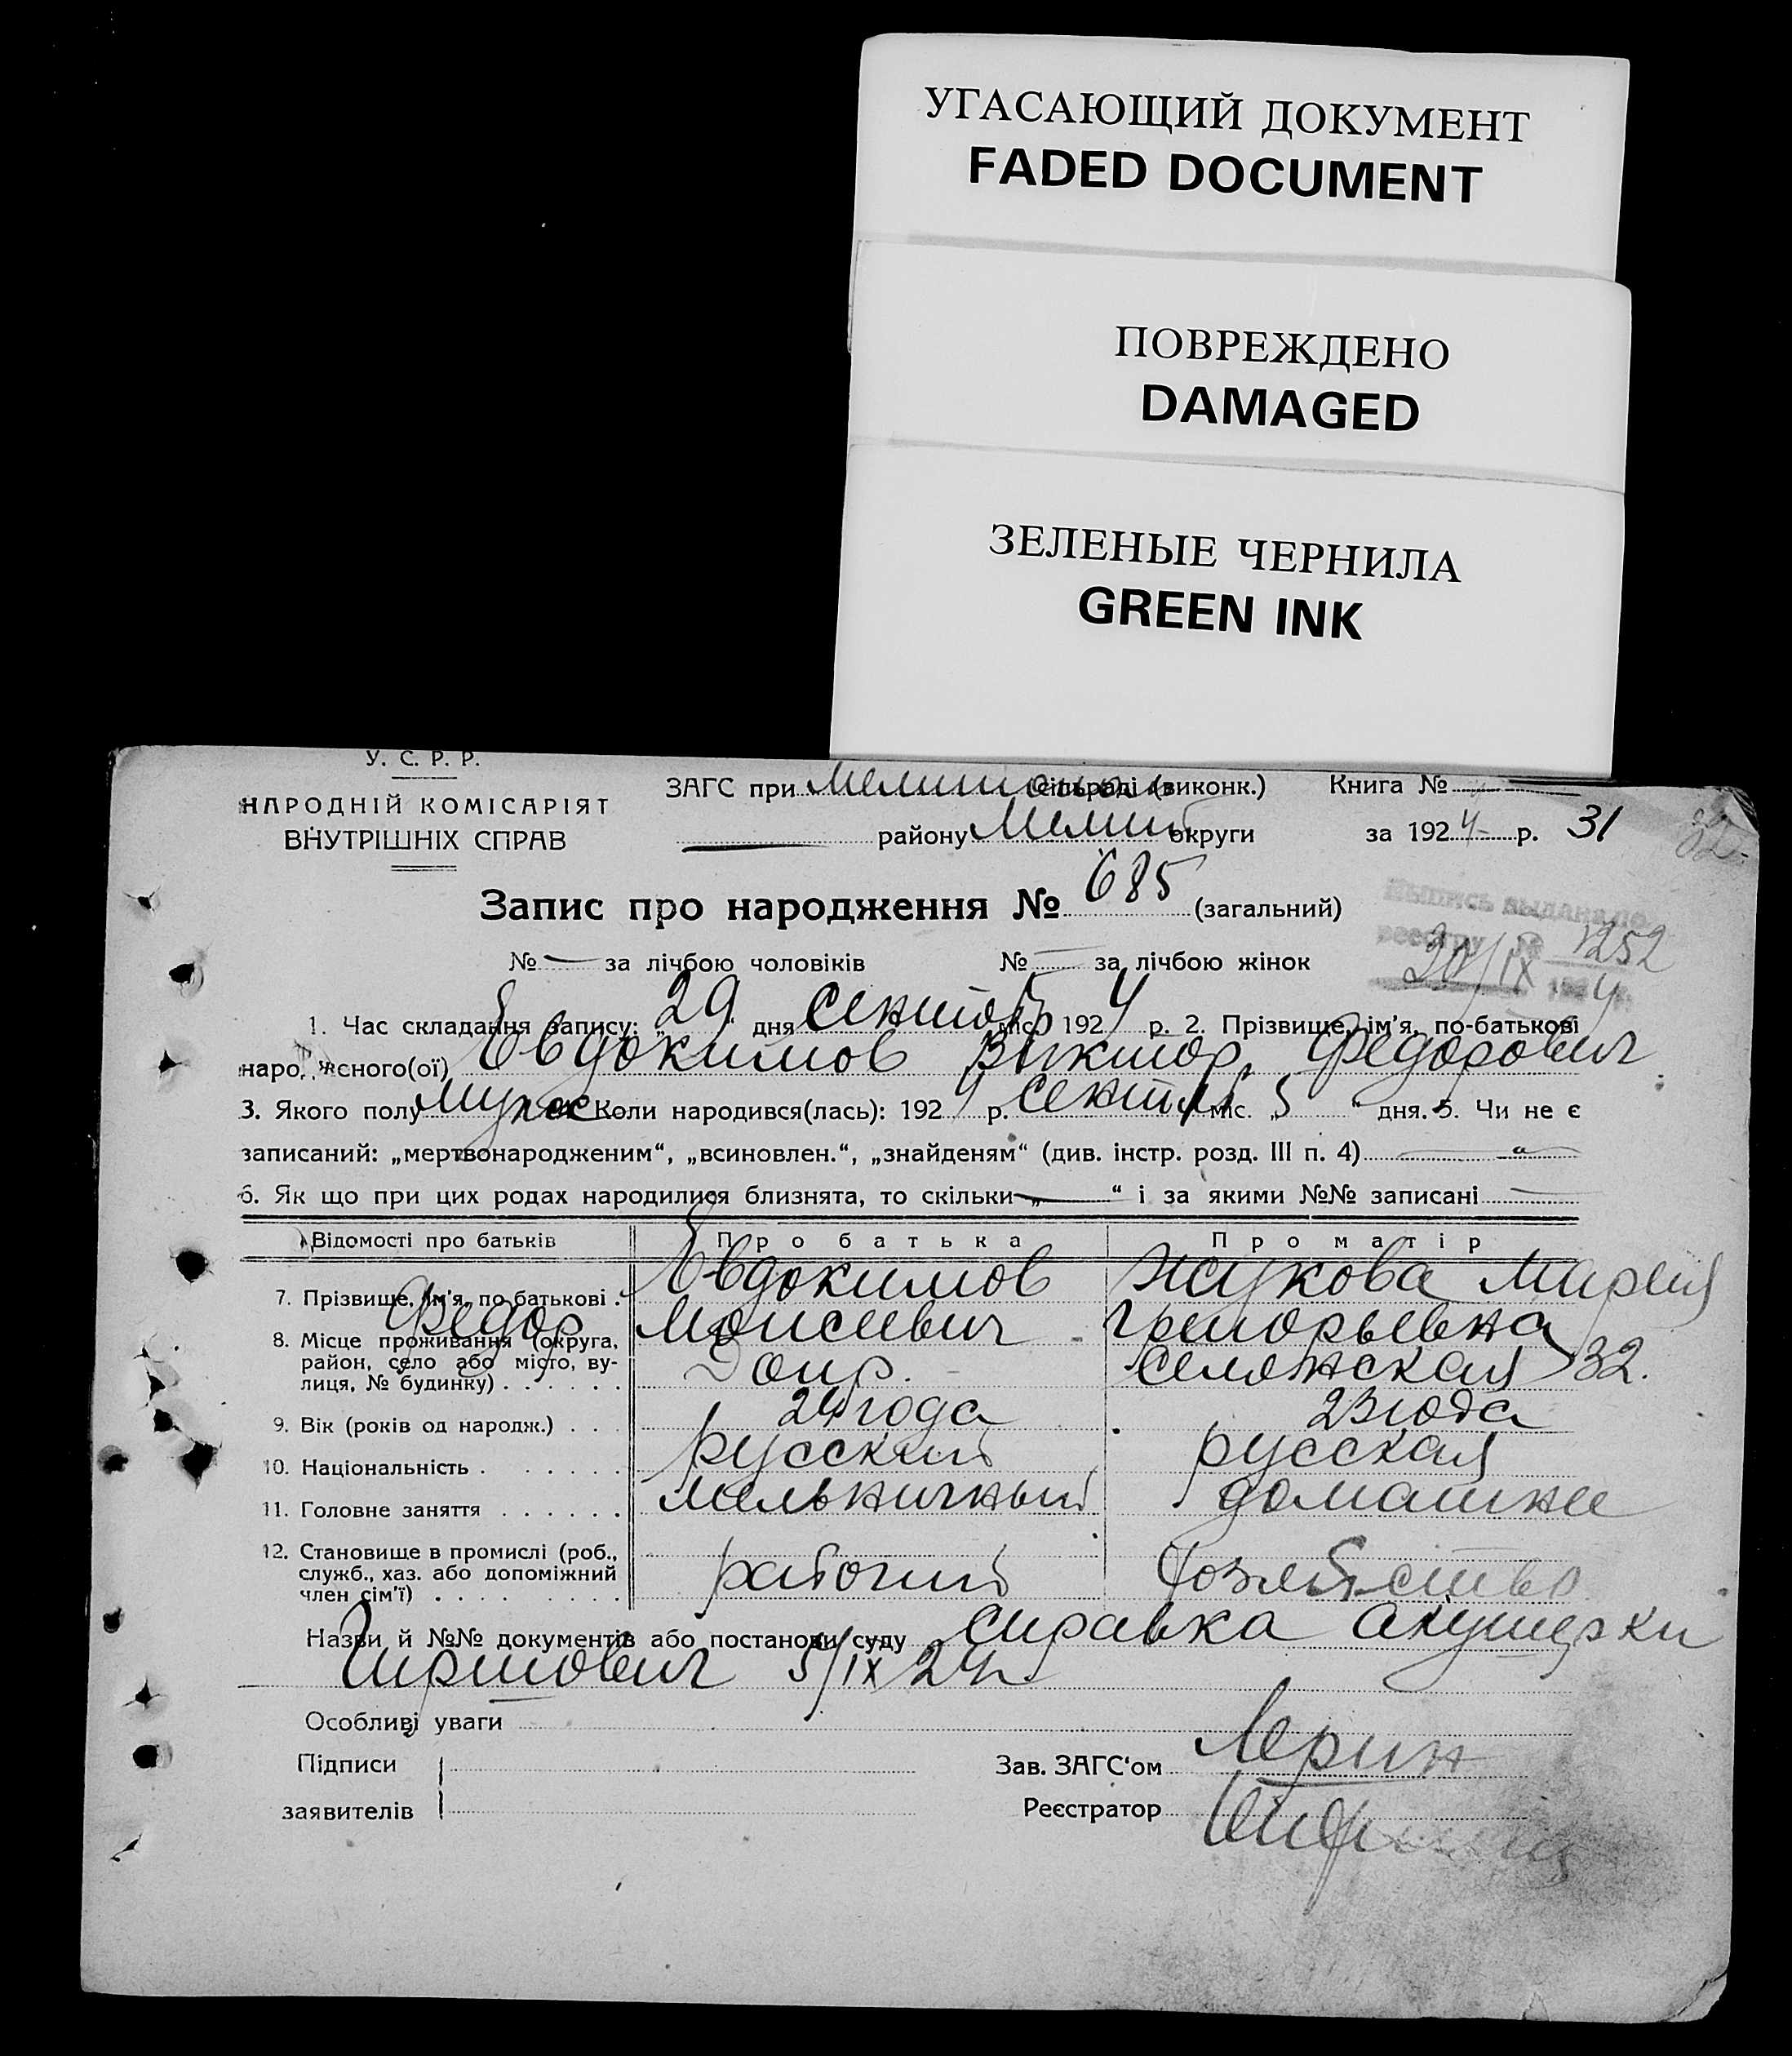 УГАСАЮЩИЙ ДОКУМЕНТ
FADED DOCUMENT
ПОВРЕЖДЕНО
DAMAGED
ЗЕЛЕНЫЕ ЧЕРНИЛА
GREEN INK
У. С. Р. Р.
НАРОДНІЙ КОМІСАРІЯТ
ВНУТРІШНІХ СПРАВ
ЗАГС при сільраді (виконк.) Книга №
району Мелит округи за 1924 р. 31
Запис про народження № 685 (загальний)
Выпись выдана по
реестру № 1252
№ за лічбою чоловіків № за лічбою жінок
1. Час складання запису: „29“ дня сентяб міс. 1924 р. 2. Прізвище, ім'я, по-батькові
народженого(ої) Евдокимов Виктор Федорович
3. Якого полу мужск Коли народився(лась): 1924 р. сентяб міс. „5“ дня. 5. Чи не є
записаний: „мертвонародженим“, „всиновлен.“, „знайденям“ (див. інстр. розд. III п. 4)
6. Як що при цих родах народилися близнята, то скільки „ “ і за якими №№ записані
Відомості про батьків Про батька Про матір
7. Прізвище, ім'я, по-батькові Евдокимов Жукова Мария
Федор Моисеевич Григорьевна
8. Місце проживання (округа, район, село або місто, вулиця, № будинку) 32.
9. Вік (років од народж.) 24 года 23 года
10. Національність русский русская
11. Головне заняття мельничный домашнее
12. Становище в промислі (роб., служб., хаз. або допоміжний член сім'ї) рабочий хозяйство
Назви й №№ документів або постанови суду справка акушерки
5/IX 24 г
Особливі уваги
Підписи
заявителів
Зав. ЗАГС'ом
Реєстратор